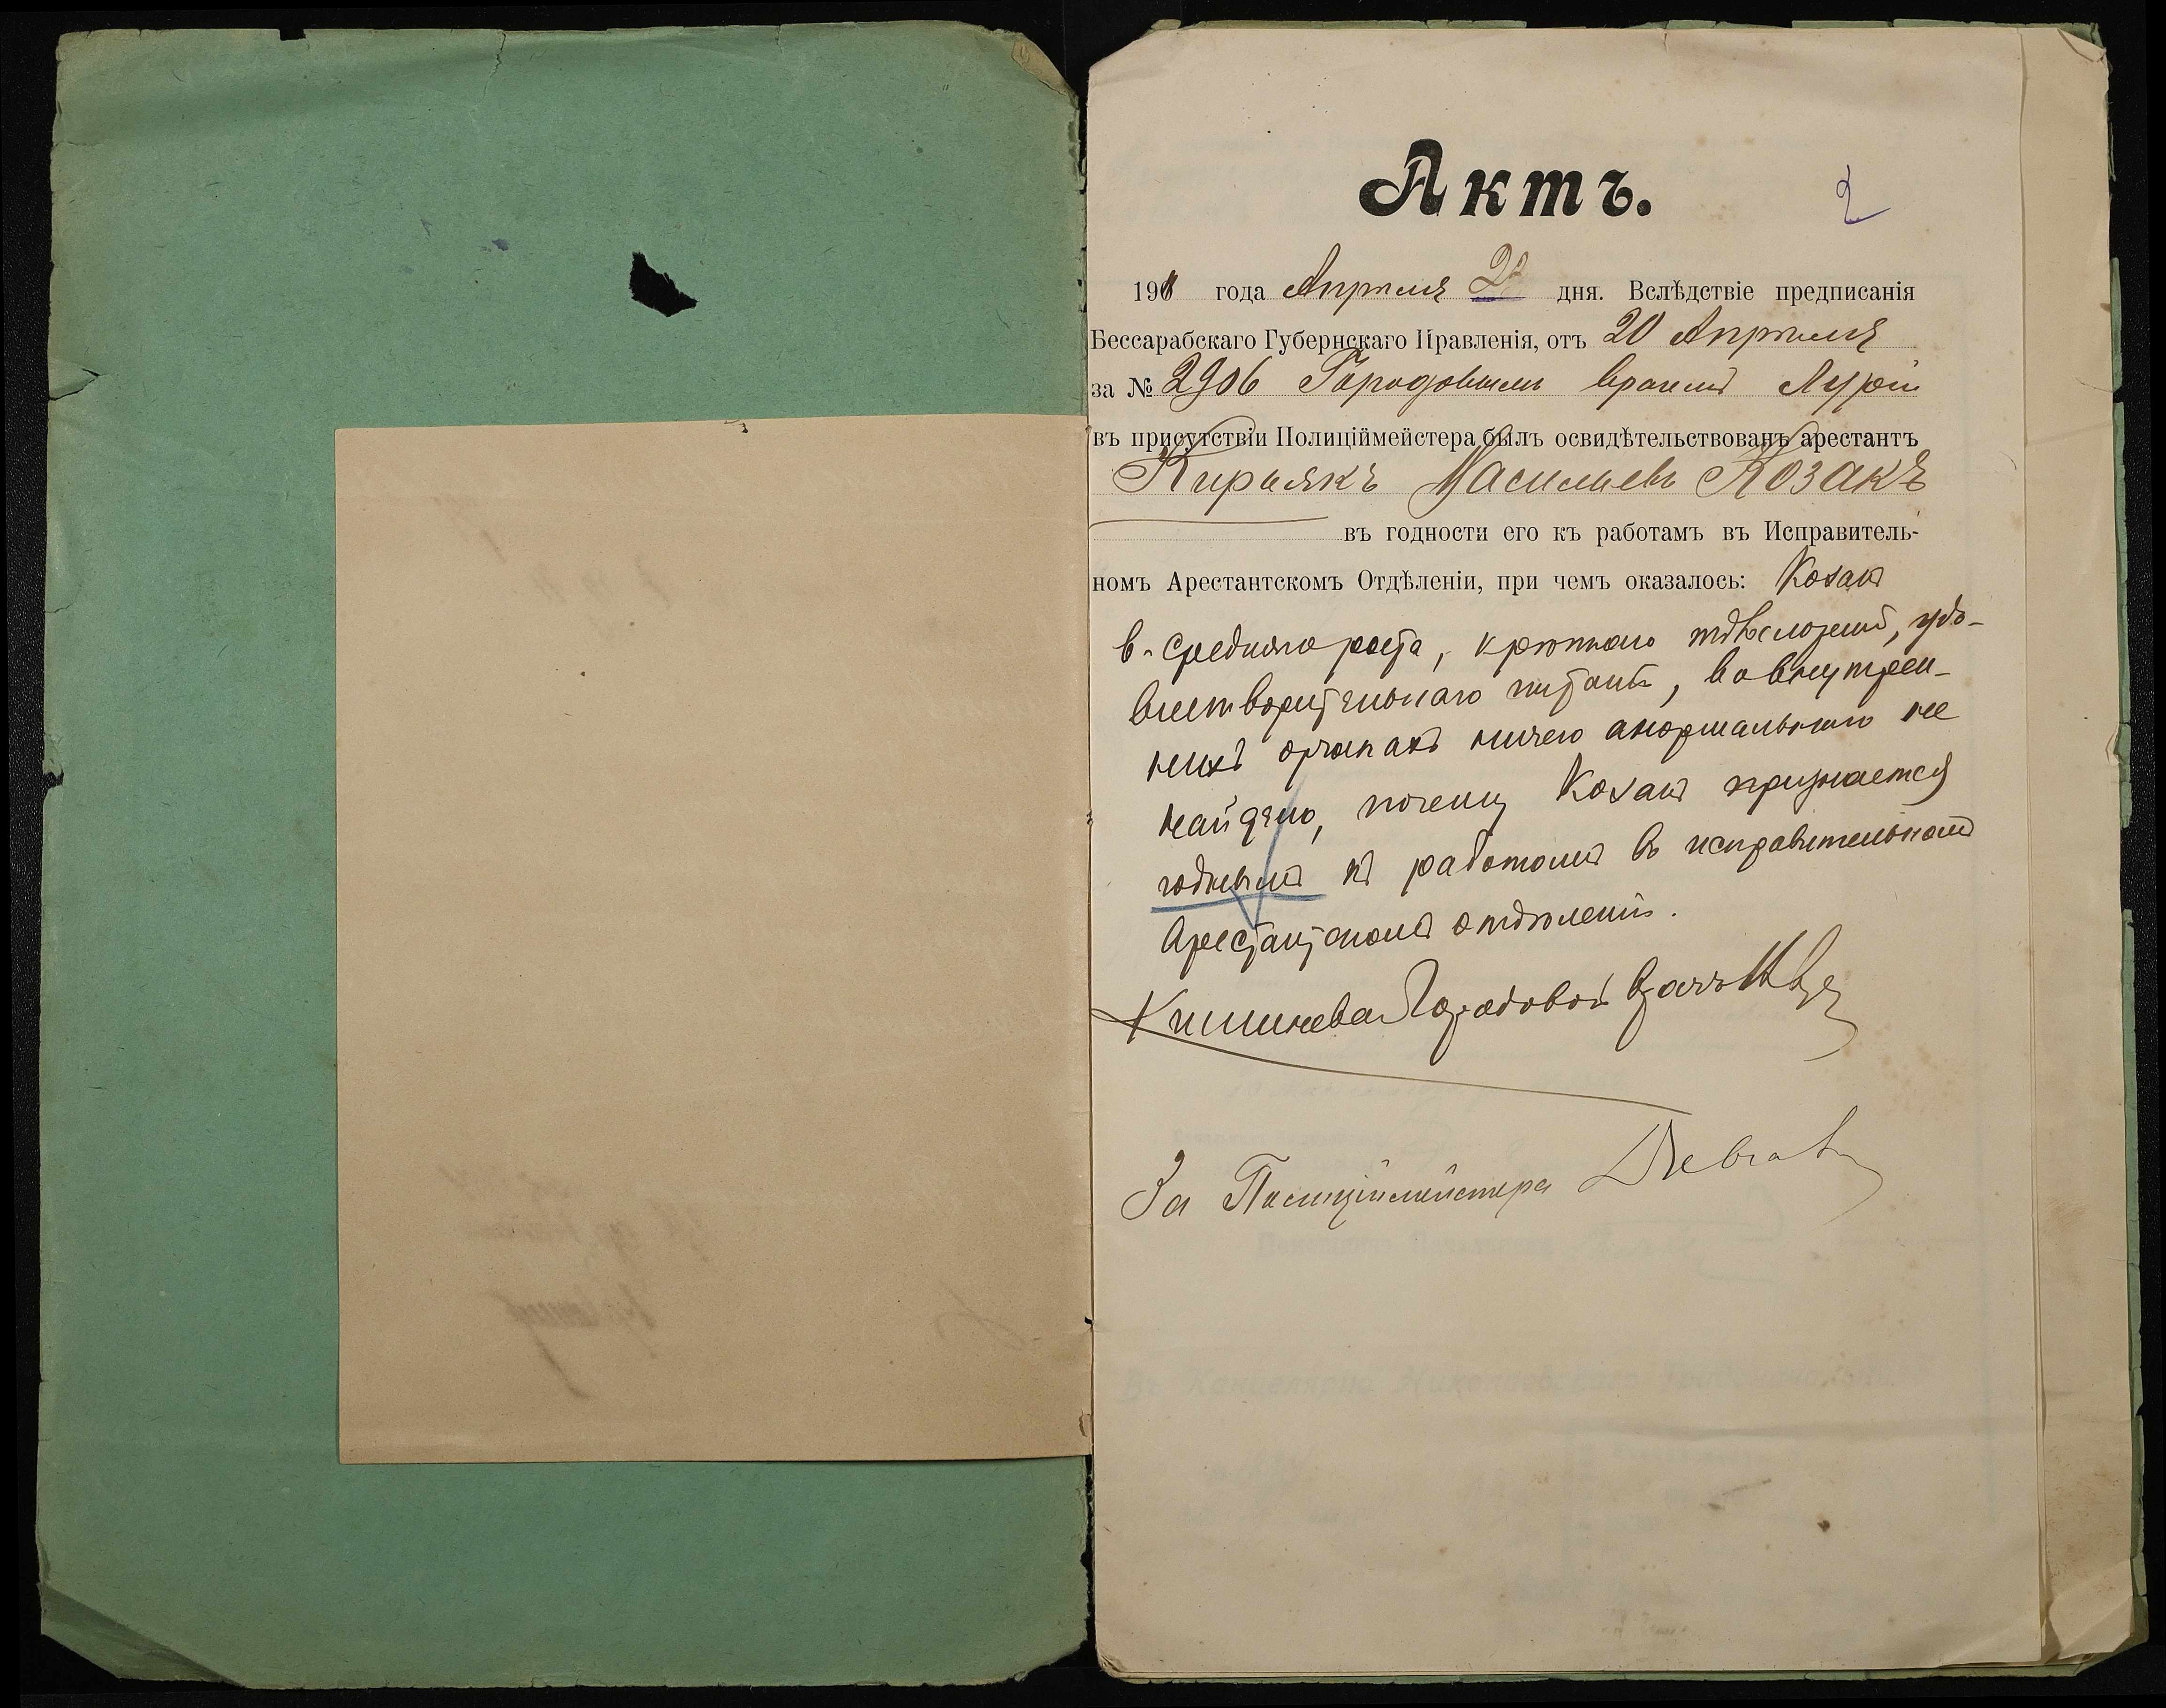 Актъ.
2
1908 года Апрѣля 22 дня. Вслѣдствіе предписанія
Бессарабскаго Губернскаго Правленія, отъ 20 Апрѣля
за № 2906 Городовымъ врачемъ
въ присутствіи Полиціймейстера былъ освидѣтельствованъ арестантъ
Кирьякъ Васильевъ Козакъ
въ годности его къ работамъ въ Исправитель-
номъ Арестантскомъ Отдѣленіи, при чемъ оказалось: Козакъ
средняго роста, крѣпкаго тѣлосложенія, удо-
влетворительнаго питанія, во внутрен-
нихъ органахъ ничего анормальнаго не
найдено, почему Козакъ признается
годнымъ къ работамъ въ исправительномъ
Арестантскомъ отдѣленіи.
Кишиневскій Городовой врачъ
За Полиціймейстера